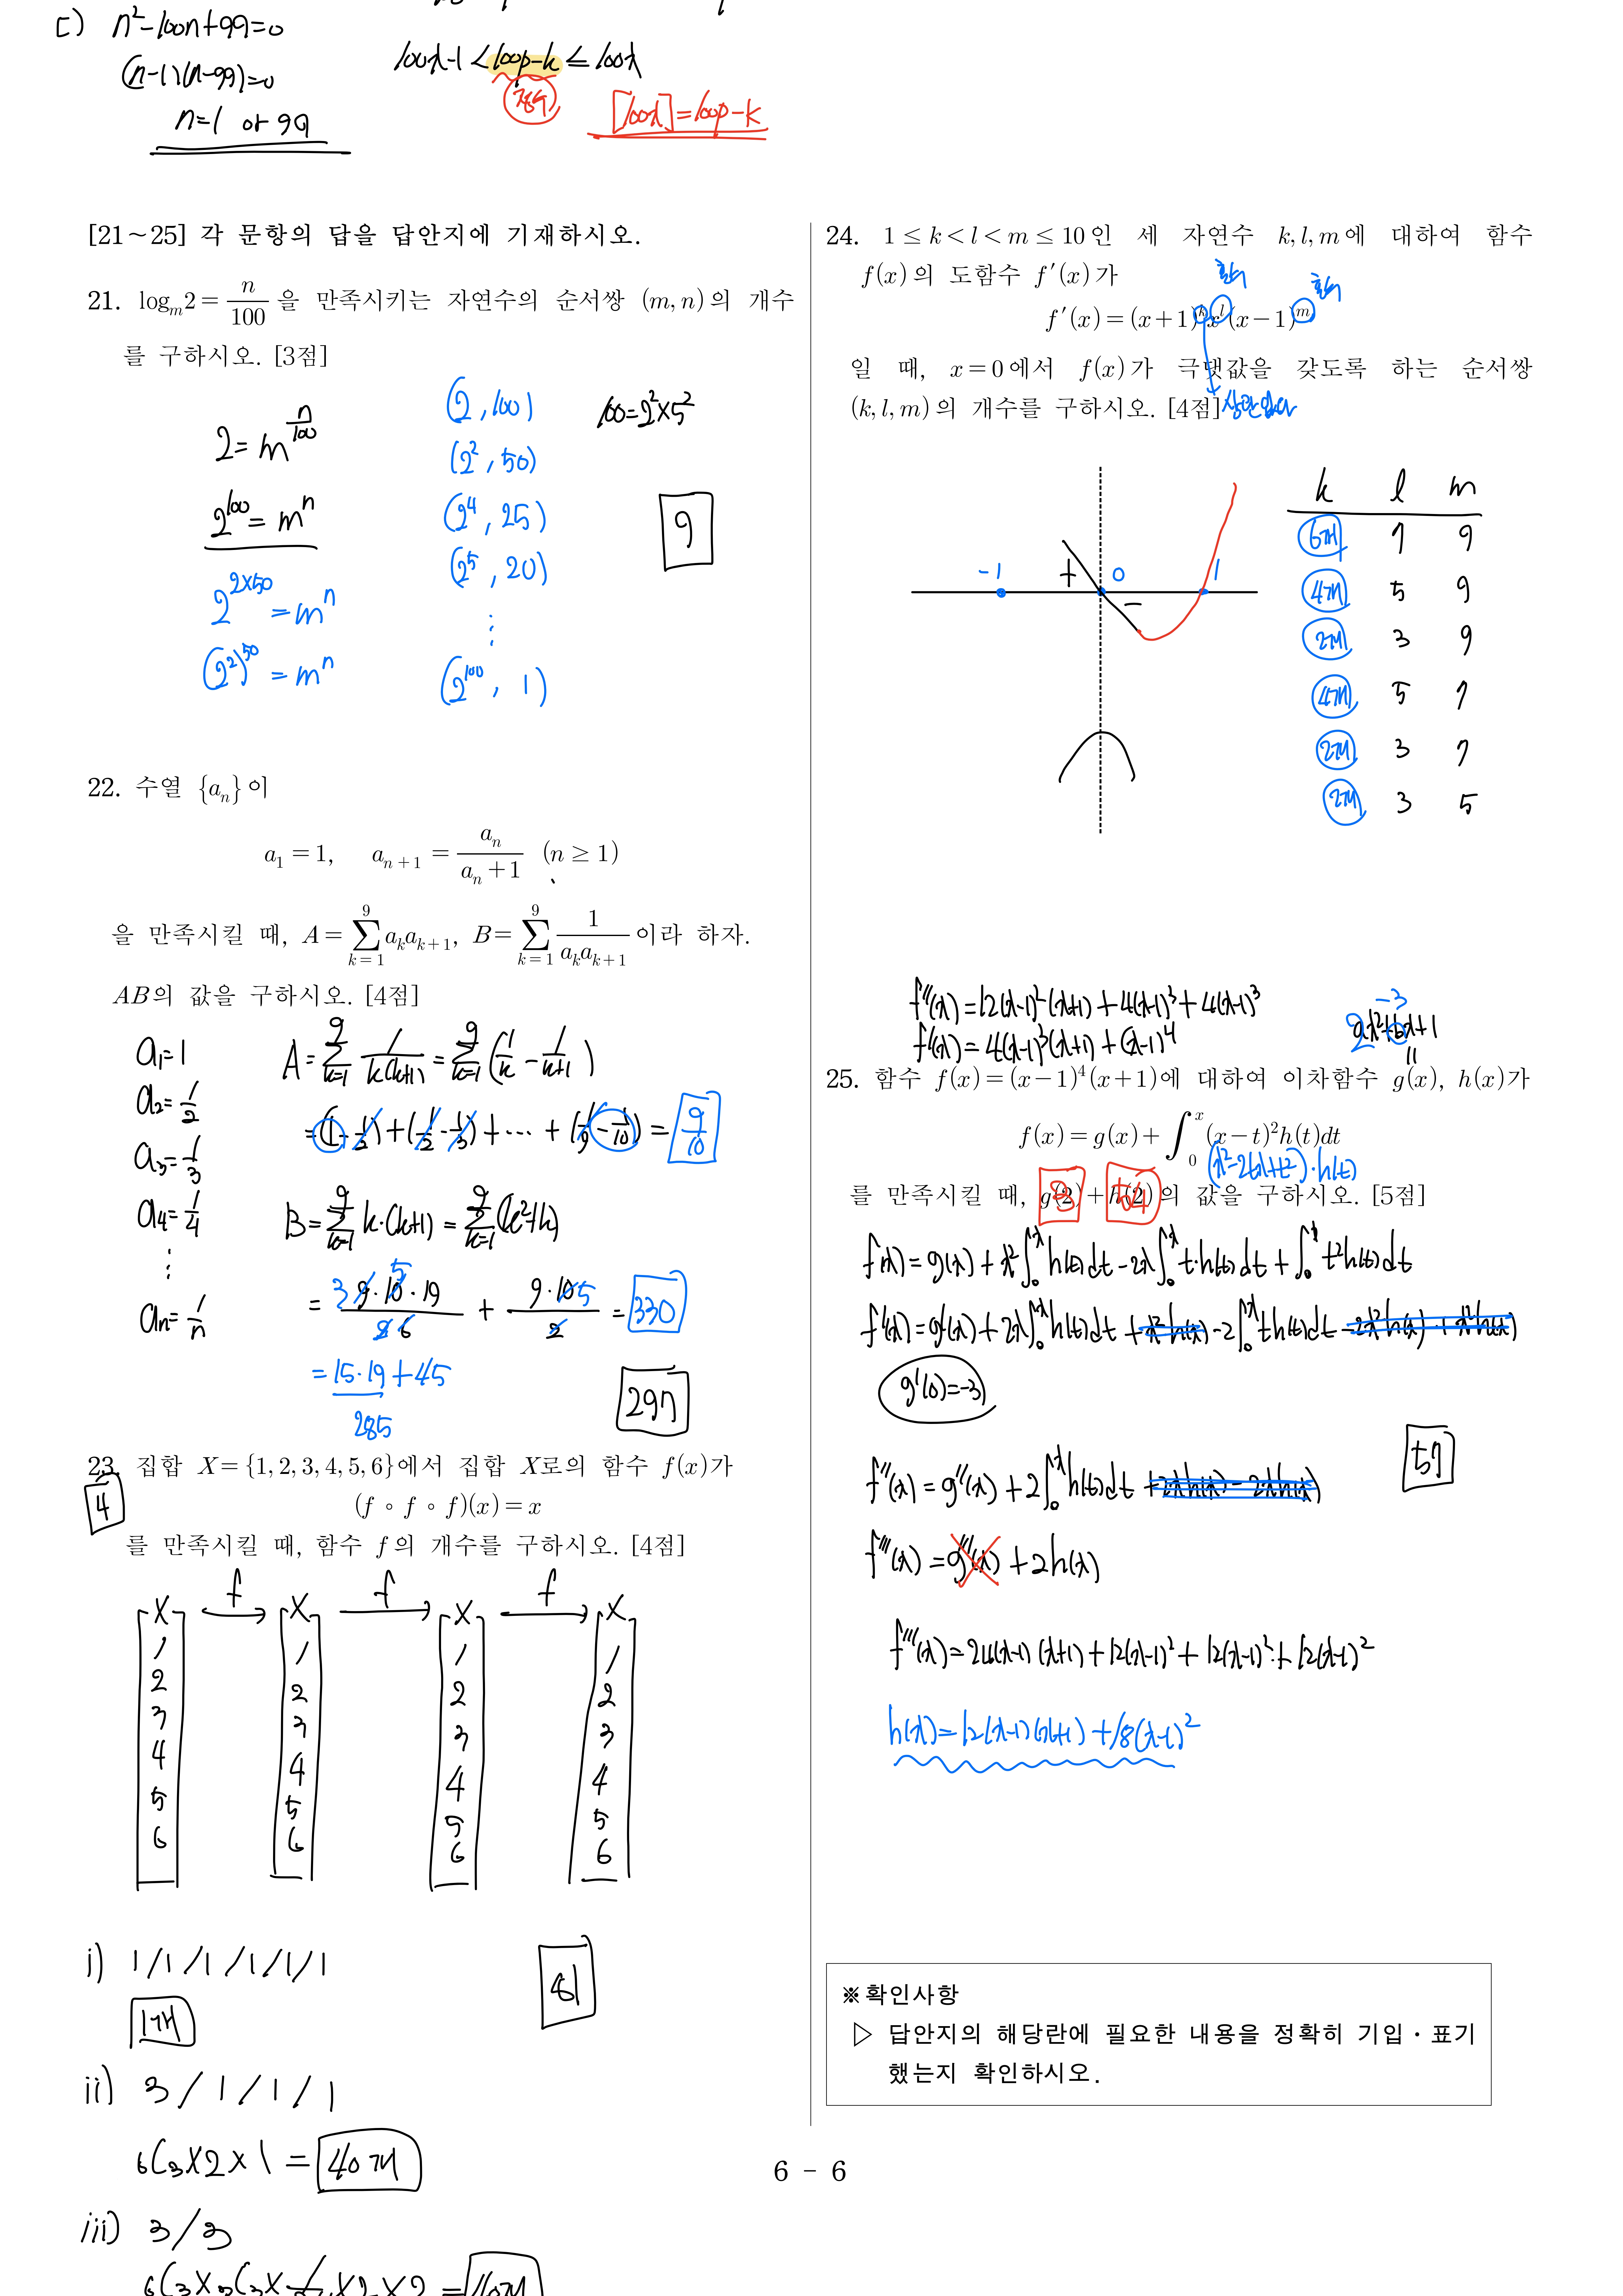 ㄷ) n²-100n+99=0
(n-1)(n-99)=0
n=1 or 99
100x-1<100p-k≤100x
정수
[100x]=100p-k
[21～25] 각 문항의 답을 답안지에 기재하시오.
21. logₘ2 = n/100 을 만족시키는 자연수의 순서쌍 (m, n)의 개수
를 구하시오. [3점]
2=m^(n/100)
2^100=m^n
2^(2×50)=m^n
(2²)^50=m^n
(2, 100)
(2², 50)
(2⁴, 25)
(2⁵, 20)
⋮
(2^100, 1)
100=2²×5²
9
22. 수열 {aₙ}이
a₁=1, aₙ₊₁ = aₙ/(aₙ+1) (n ≥ 1)
을 만족시킬 때, A=∑_{k=1}^{9} aₖaₖ₊₁, B=∑_{k=1}^{9} 1/(aₖaₖ₊₁) 이라 하자.
AB의 값을 구하시오. [4점]
a₁=1
a₂=1/2
a₃=1/3
a₄=1/4
⋮
aₙ=1/n
A=∑_{k=1}^{9} 1/(k(k+1)) = ∑_{k=1}^{9} (1/k - 1/(k+1))
=(1-1/2)+(1/2-1/3)+⋯+(1/9-1/10)= 9/10
B=∑_{k=1}^{9} k·(k+1) = ∑_{k=1}^{9} (k²+k)
= 9·10·19/6 + 9·10/2 = 330
=15·19+45
285
297
23. 집합 X={1, 2, 3, 4, 5, 6}에서 집합 X로의 함수 f(x)가
4
(f ∘ f ∘ f)(x)=x
를 만족시킬 때, 함수 f의 개수를 구하시오. [4점]
X f X f X f X
1 1 1 1
2 2 2 2
3 3 3 3
4 4 4 4
5 5 5 5
6 6 6 6
i) 1/1/1/1/1/1
1개
81
ii) 3/1/1/1
₆C₃×2×1 = 40개
iii) 3/3
24. 1 ≤ k < l < m ≤ 10인 세 자연수 k, l, m에 대하여 함수
f(x)의 도함수 f′(x)가
홀수
홀수
f′(x)=(x+1)^k x^l (x-1)^m
일 때, x=0에서 f(x)가 극댓값을 갖도록 하는 순서쌍
(k, l, m)의 개수를 구하시오. [4점]
상관없다
k l m
6개 7 9
4개 5 9
2개 3 9
4개 5 7
2개 3 7
2개 3 5
-1 + 0 - 1
f″(x)=12(x-1)²(x+1)+4(x-1)³+4(x-1)³
f′(x)=4(x-1)³(x+1)+(x-1)⁴
25. 함수 f(x)=(x-1)⁴(x+1)에 대하여 이차함수 g(x), h(x)가
f(x)=g(x)+∫₀ˣ(x-t)²h(t)dt
(x²-2tx+t²)·h(t)
를 만족시킬 때, g(2)+h(2)의 값을 구하시오. [5점]
3 54
f(x)=g(x)+x²∫₀ˣh(t)dt-2x∫₀ˣt·h(t)dt+∫₀ˣt²h(t)dt
f′(x)=g′(x)+2x∫₀ˣh(t)dt+x²h(x)-2∫₀ˣth(t)dt-2x²h(x)+x²h(x)
g′(0)=-3
57
f″(x)=g″(x)+2∫₀ˣh(t)dt+2xh(x)-2xh(x)
f‴(x)=g‴(x)+2h(x)
f‴(x)=24(x-1)(x+1)+12(x-1)²+12(x-1)²+12(x-1)²
h(x)=12(x-1)(x+1)+18(x-1)²
※ 확인사항
▷ 답안지의 해당란에 필요한 내용을 정확히 기입·표기
했는지 확인하시오.
6 - 6